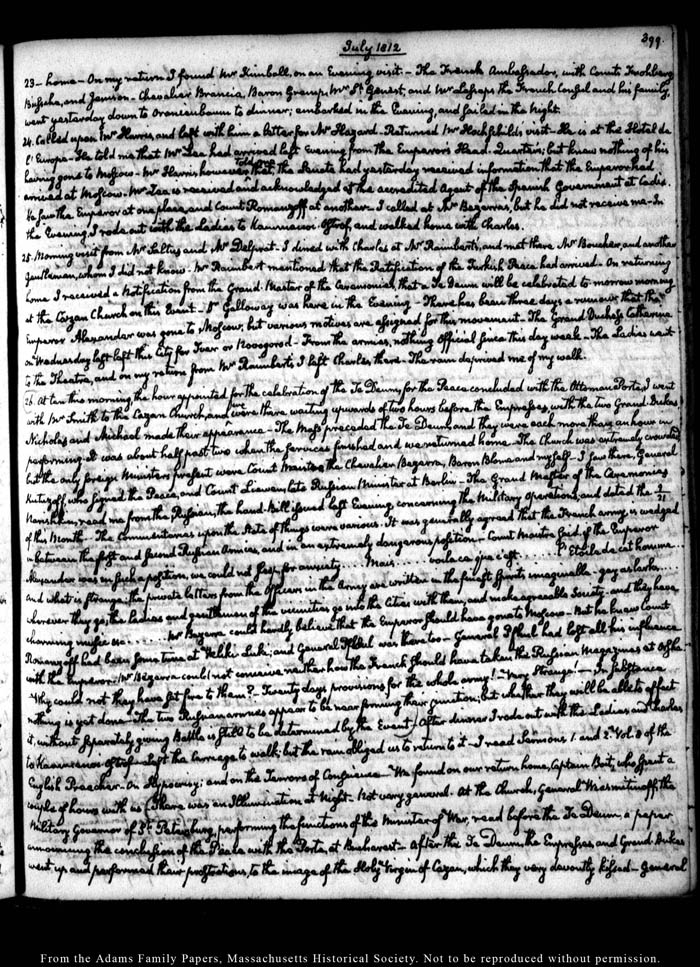 399.
July 1812
23 – home – On my return I found Mr Kimball, on an Evening visit – The French Ambassador, with Counts Frohberg
Bussche, and Jenison – Chevalier Brancia, Baron Gremp, Mr St Genest, and Mr Lesseps the French Consul and his family,
went yesterday down to Oranienbaum to dinner; embarked in the Evening, and sailed in the Night.
24. Called upon Mr Harris, and left with him a letter for Mr Hazard. Returned Mr Hochschild's visit – He is at the Hotel de
l'Europe – He told me that Mr Lea had arrived last evening from the Emperor's Head-Quarters; but knew nothing of his
having gone to Moscow – Mr Harris, however told me that, the Senate had yesterday received information that the Emperor had
arrived at Moscow. Mr Zea is received and acknowledged as the accredited Agent of the Spanish Government at Cadiz.
He saw the Emperor at one place, and Count Romanzoff at another – I called at Mr Bezerra's, but he did not receive me – In
the Evening, I rode out with the Ladies to Kammenoi Ostrof, and walked home with Charles.
25. Morning visit from Mr Luttus and Mr Delprat – I dined with Charles at Mr Raimbert's, and met there Mr Boucher, and another
Gentleman, whom I did not know – Mr Raimbert mentioned that the Ratification of the Turkish Peace had arrived – On returning
home I received a Notification from the Grand-Master of the Ceremonies, that a Te Deum will be celebrated to-morrow morning
at the Cazan Church on this Event – Dr Galloway was here in the Evening – There has been three days a rumour, that the
Emperor Alexander was gone to Moscow, but various motives are assigned for this movement – The Grand Duchess Catherine
on Wednesday last left this City for Twer or Novogorod – From the armies, nothing Official since this day week – The Ladies went
to the Theatre, and on my return from Mr Raimbert's I left Charles there – The rain deprived me of my walk.
26. At ten this morning, the hour appointed for the celebration of the Te Deum, for the Peace concluded with the Ottoman Porte, I went
with Mr Smith to the Cazan Church, and were there, waiting upwards of two hours before the Empresses, with the two Grand Dukes
Nicholas and Michael made their appearance – The Mass preceded the Te Deum, and they were each more than an hour in
performing. It was about half past two when the services finished and we returned home – The Church was extremely crowded
but the only foreign Ministers present were Count Maistre, the Chevalier Bezerra, Baron Blome and myself – I saw there, General
Kutuzoff, who signed the Peace, and Count Lieven, late Russian Minister at Berlin – The Grand Master of the Ceremonies
Narishkin, read me from the Russian, the hand-bill issued last Evening, concerning the Military Operations, and dated the 9/21
of this Month – The commentaries upon the State of things were various. It was generally agreed that the French army, is wedged
in between the first and second Russian Armies, and in an extremely dangerous position – Count Maistre said, if the Emperor
Alexander was in such a position, we could not sleep for anxiety . . . . Mais . . . . voila ce que c'est . . . . l'Etoile de cet homme . . . .
and what is strange, the private letters from the Officers in the Army are written in the finest spirits imaginable – gay as larks . . . .
wherever they go, the Ladies and gentlemen of the vicinities go into the Cities with them, and make agreeable Society – and they have
charming musick &c . . . . . . Mr Bezerra could hardly believe that the Emperor should have gone to Moscow – But he knew Count
Romanzoff had been some time at Veliki Luki; and General Pfuhl was there too – General Pfuhl had lost all his influence
with the Emperor. Mr Bezerra could not conceive neither how the French should have taken the Russian Magazines at
Why could not they have set fire to them? – Twenty days provisions for the whole army! – Very strange! – In substance
nothing is yet done – The two Russian armies appear to be near forming their junction; but whether they will be able to effect
it, without separately giving Battle is still to be determined by the Event. After dinner I rode out with the Ladies and Charles
to Kammenoi ostrof – left the Carriage to walk; but the rain obliged us to return to it – I read Sermons 1. and 2. Vol. 8 of the
English Preacher – On Hypocrisy; and on the Terrors of Conscience – We found on our return home, Captain Bat, who spent a
couple of hours with us (There was an Illumination at Night. Not very general. At the Church, General Wiasmitinoff, the
Military Governor of St Petersburg, performing the functions of the Minister of War, read before the Te Deum – a paper
announcing the conclusion of the Peace with the Porte, at Bucharest – After the Te Deum, the Empresses, and Grand Dukes
went up and performed their prostrations, to the image of the Holy Virgin of Cazan, which they very devoutly kissed – General
From the Adams Family Papers, Massachusetts Historical Society. Not to be reproduced without permission.